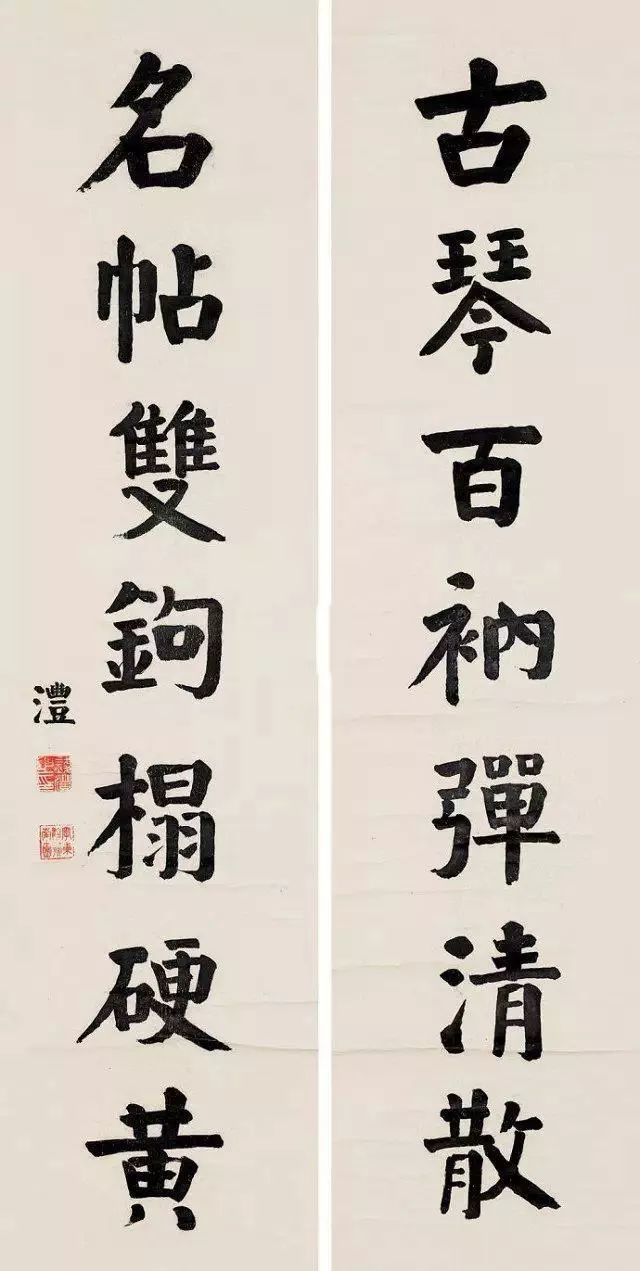 古琴百衲彈清散
名帖雙鉤榻硬黄
澧